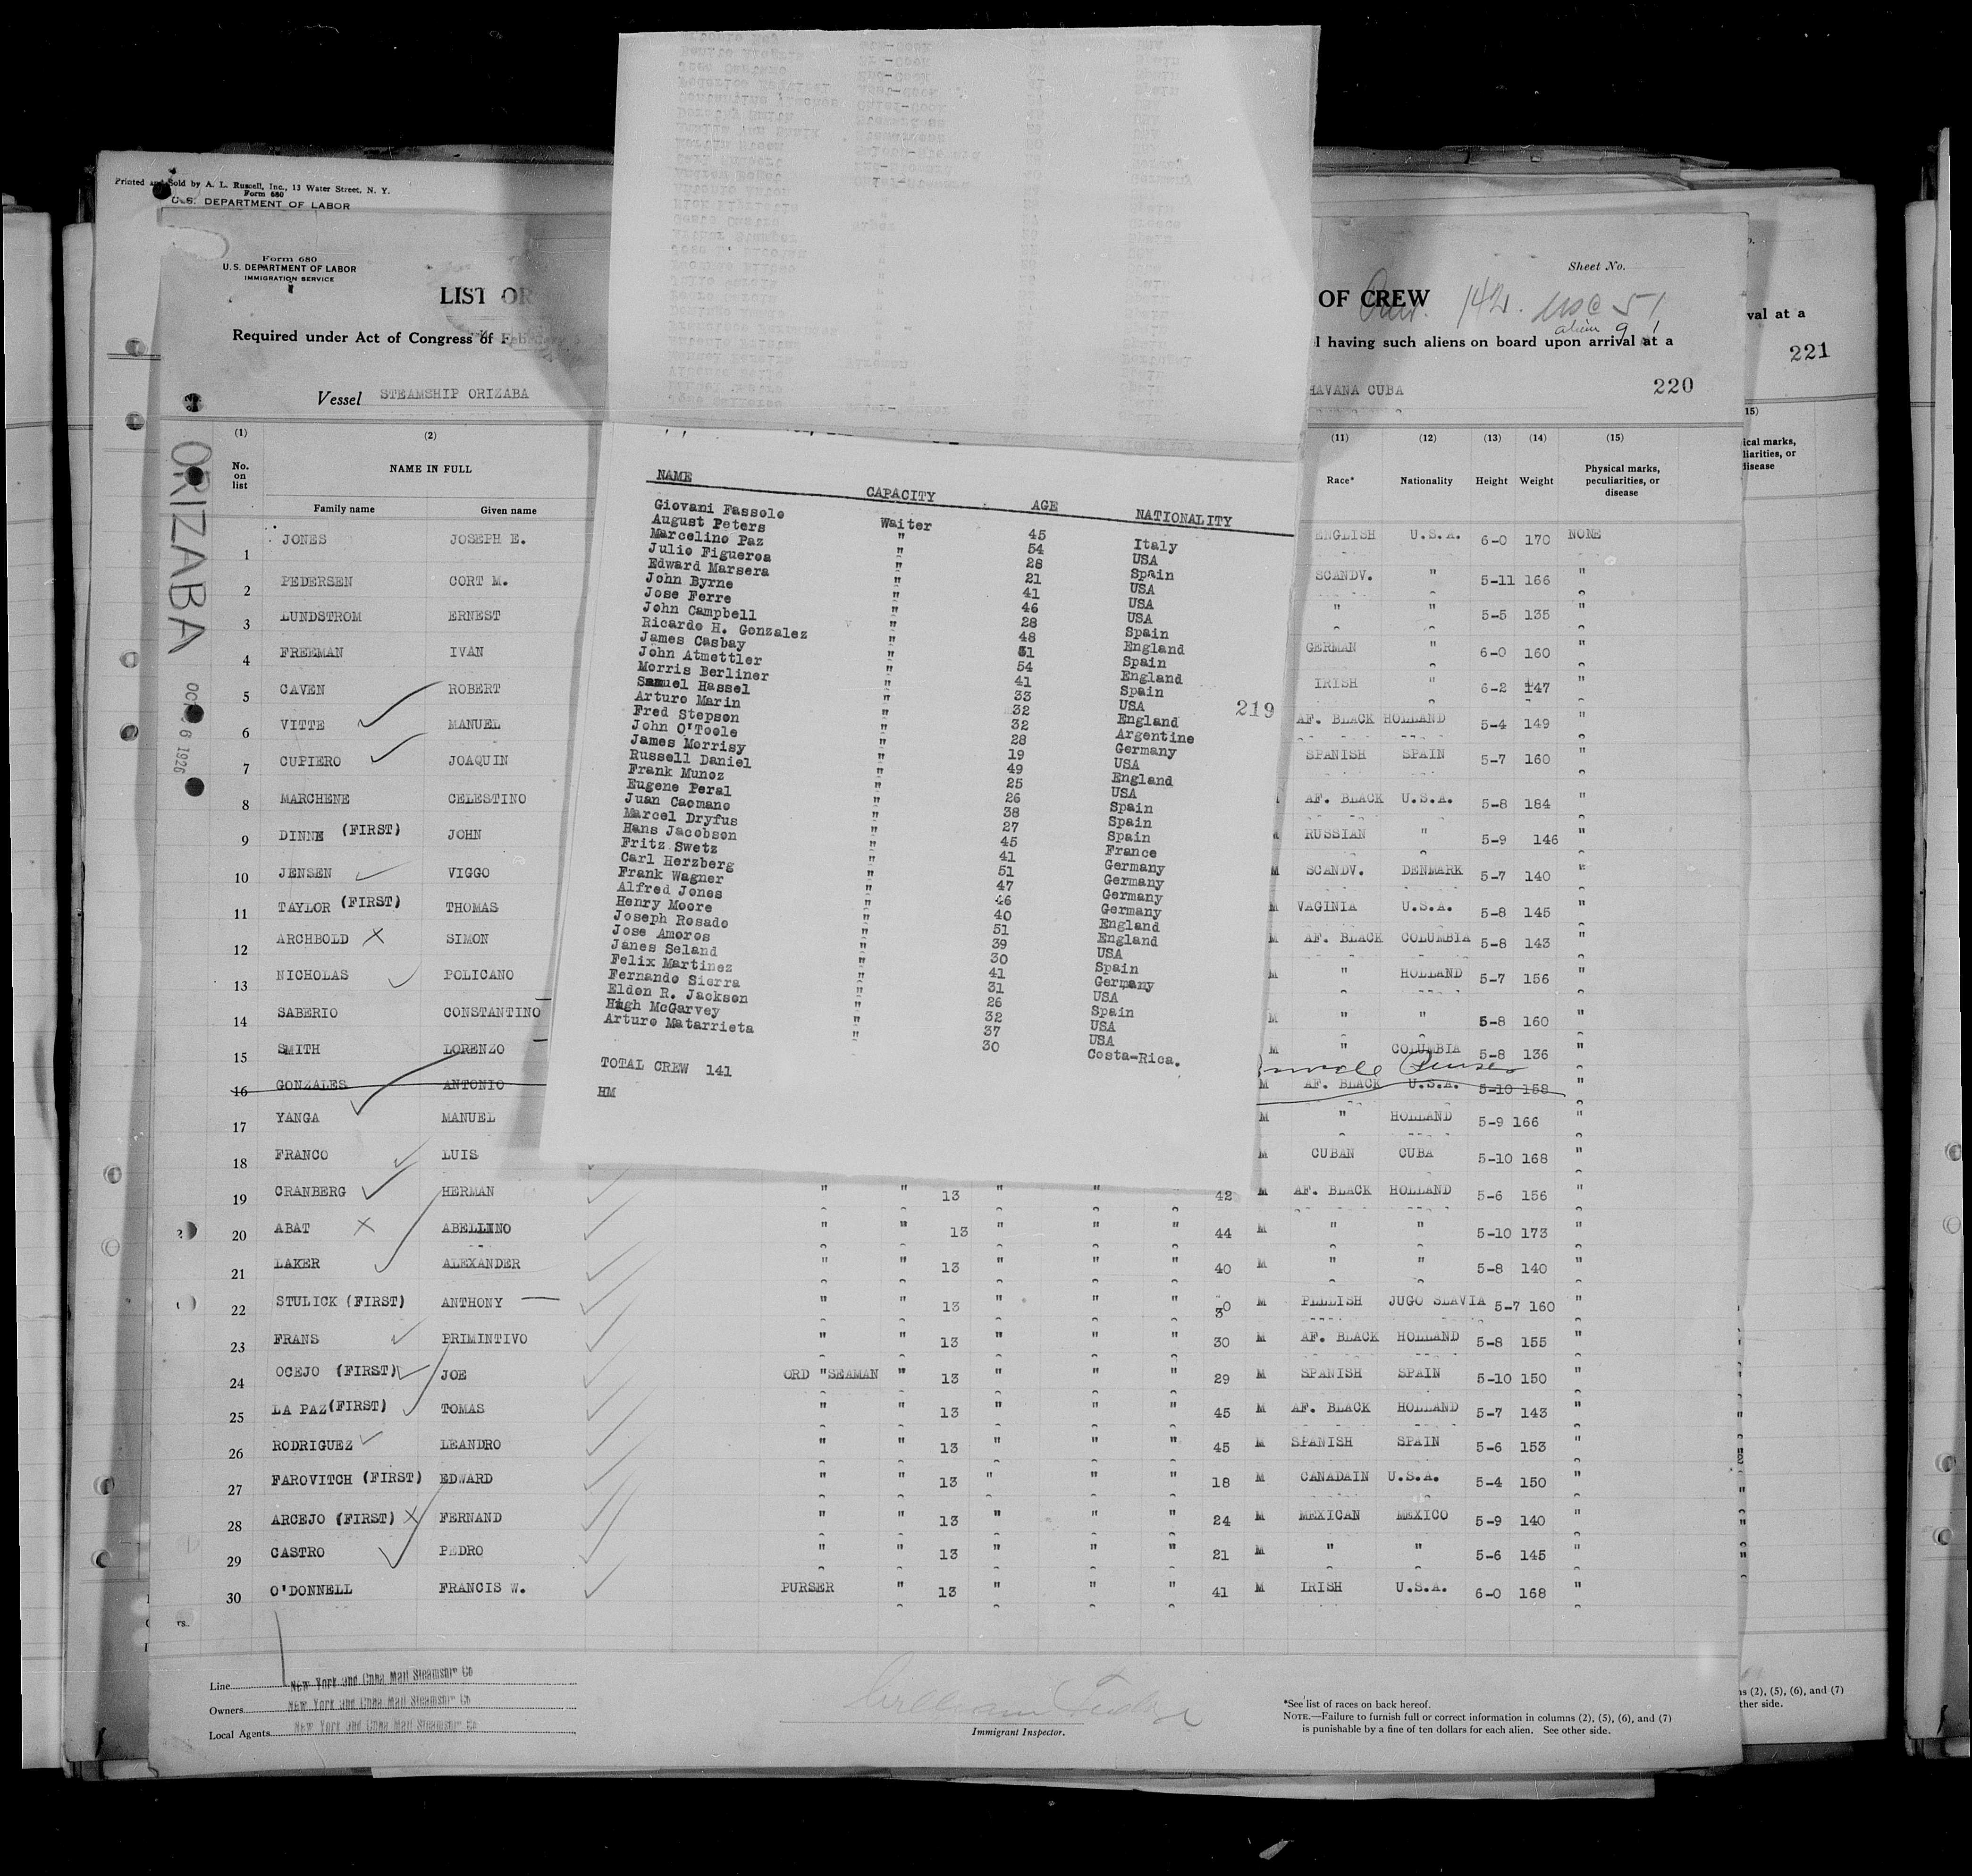 Printed and Sold by A. L. Russell, Inc., 13 Water Street, N. Y.
Form 680
U.S. DEPARTMENT OF LABOR
Form 680
U.S. DEPARTMENT OF LABOR
IMMIGRATION SERVICE
Sheet No.
LIST OR OF CREW
142.
Required under Act of Congress of having such aliens on board upon arrival at a
Vessel STEAMSHIP ORIZABA HAVANA CUBA 220
val at a
221
ORIZABA
1926
(1) (2) (11) (12) (13) (14) (15)
No. on list NAME IN FULL Race* Nationality Height Weight Physical marks, peculiarities, or disease
Family name Given name
1 JONES JOSEPH E. ENGLISH U.S.A. 6-0 170 NONE
2 PEDERSEN CORT M. SCANDV. " 5-11 166 "
3 LUNDSTROM ERNEST " " 5-5 135 "
4 FREEMAN IVAN GERMAN " 6-0 160 "
5 CAVEN ROBERT IRISH " 6-2 147 "
6 VITTE MANUEL AF. BLACK HOLLAND 5-4 149 "
7 CUPIERO JOAQUIN SPANISH SPAIN 5-7 160 "
8 MARCHENE CELESTINO AF. BLACK U.S.A. 5-8 184 "
9 DINNE (FIRST) JOHN RUSSIAN " 5-9 146 "
10 JENSEN VIGGO M SCANDV. DENMARK 5-7 140 "
11 TAYLOR (FIRST) THOMAS M VAGINIA U.S.A. 5-8 145 "
12 ARCHBOLD SIMON M AF. BLACK COLUMBIA 5-8 143 "
13 NICHOLAS POLICANO M " HOLLAND 5-7 156 "
14 SABERIO CONSTANTINO M " " 5-8 160 "
15 SMITH LORENZO M " COLUMBIA 5-8 136 "
16 GONZALES ANTONIO M AF. BLACK U.S.A. 5-10 158 "
17 YANGA MANUEL M " HOLLAND 5-9 166 "
18 FRANCO LUIS M CUBAN CUBA 5-10 168 "
19 CRANBERG HERMAN " " 13 " " " 42 M AF. BLACK HOLLAND 5-6 156 "
20 ABAT ABELLINO " " 13 " " " 44 M " " 5-10 173 "
21 LAKER ALEXANDER " " 13 " " " 40 M " " 5-8 140 "
22 STULICK (FIRST) ANTHONY " " 13 " " " 30 M PELLISH JUGO SLAVIA 5-7 160 "
23 FRANS PRIMINTIVO " " 13 " " " 30 M AF. BLACK HOLLAND 5-8 155 "
24 OCEJO (FIRST) JOE ORD "SEAMAN " 13 " " " 29 M SPANISH SPAIN 5-10 150 "
25 LA PAZ(FIRST) TOMAS " " 13 " " " 45 M AF. BLACK HOLLAND 5-7 143 "
26 RODRIGUEZ LEANDRO " " 13 " " " 45 M SPANISH SPAIN 5-6 153 "
27 FAROVITCH (FIRST) EDWARD " " 13 " " " 18 M CANADAIN U.S.A. 5-4 150 "
28 ARCEJO (FIRST) FERNAND " " 13 " " " 24 M MEXICAN MEXICO 5-9 140 "
29 CASTRO PEDRO " " 13 " " " 21 M " " 5-6 145 "
30 O'DONNELL FRANCIS W. PURSER " 13 " " " 41 M IRISH U.S.A. 6-0 168 "
NAME CAPACITY AGE NATIONALITY
Giovani Fassolo Waiter 45 Italy
August Peters " 54 USA
Marcelino Paz " 28 Spain
Julio Figueroa " 21 USA
Edward Marsera " 41 USA
John Byrne " 46 USA
Jose Ferre " 28 Spain
John Campbell " 48 England
Ricardo H. Gonzalez " 31 Spain
James Casbay " 54 England
John Atmettler " 41 Spain
Morris Berliner " 33 USA
Samuel Hassel " 32 England
Arturo Marin " 32 Argentine
Fred Stepson " 28 Germany
John O'Toole " 19 USA
James Morrisy " 49 England
Russell Daniel " 25 USA
Frank Munoz " 26 Spain
Eugene Peral " 38 Spain
Juan Caomano " 27 Spain
Marcel Dryfus " 45 France
Hans Jacobson " 41 Germany
Fritz Swetz " 51 Germany
Carl Herzberg " 47 Germany
Frank Wagner " 46 Germany
Alfred Jones " 40 England
Henry Moore " 51 England
Joseph Rosado " 39 USA
Jose Amoros " 30 Spain
Janes Seland " 41 Germany
Felix Martinez " 31 USA
Fernando Sierra " 26 Spain
Eldon R. Jackson " 32 USA
Hugh McGarvey " 37 USA
Arturo Matarrieta " 30 Costa-Rica.
219
TOTAL CREW 141
HM
Line New York and Cuba Mail Steamship Co
Owners New York and Cuba Mail Steamship Co
Local Agents New York and Cuba Mail Steamship Co
Immigrant Inspector.
*See list of races on back hereof.
NOTE.—Failure to furnish full or correct information in columns (2), (5), (6), and (7)
is punishable by a fine of ten dollars for each alien. See other side.